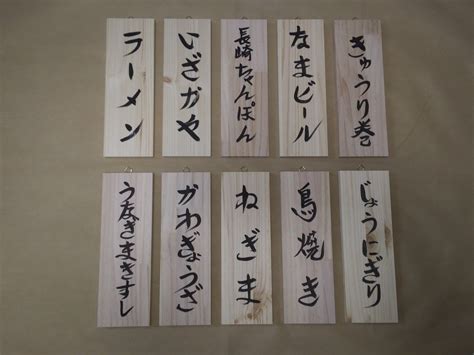 ラーメン
いざかや
長崎ちゃんぽん
なまビール
きゅうり巻
うなぎまきすし
かわぎょうざ
ねぎま
鳥焼き
じょうにぎり